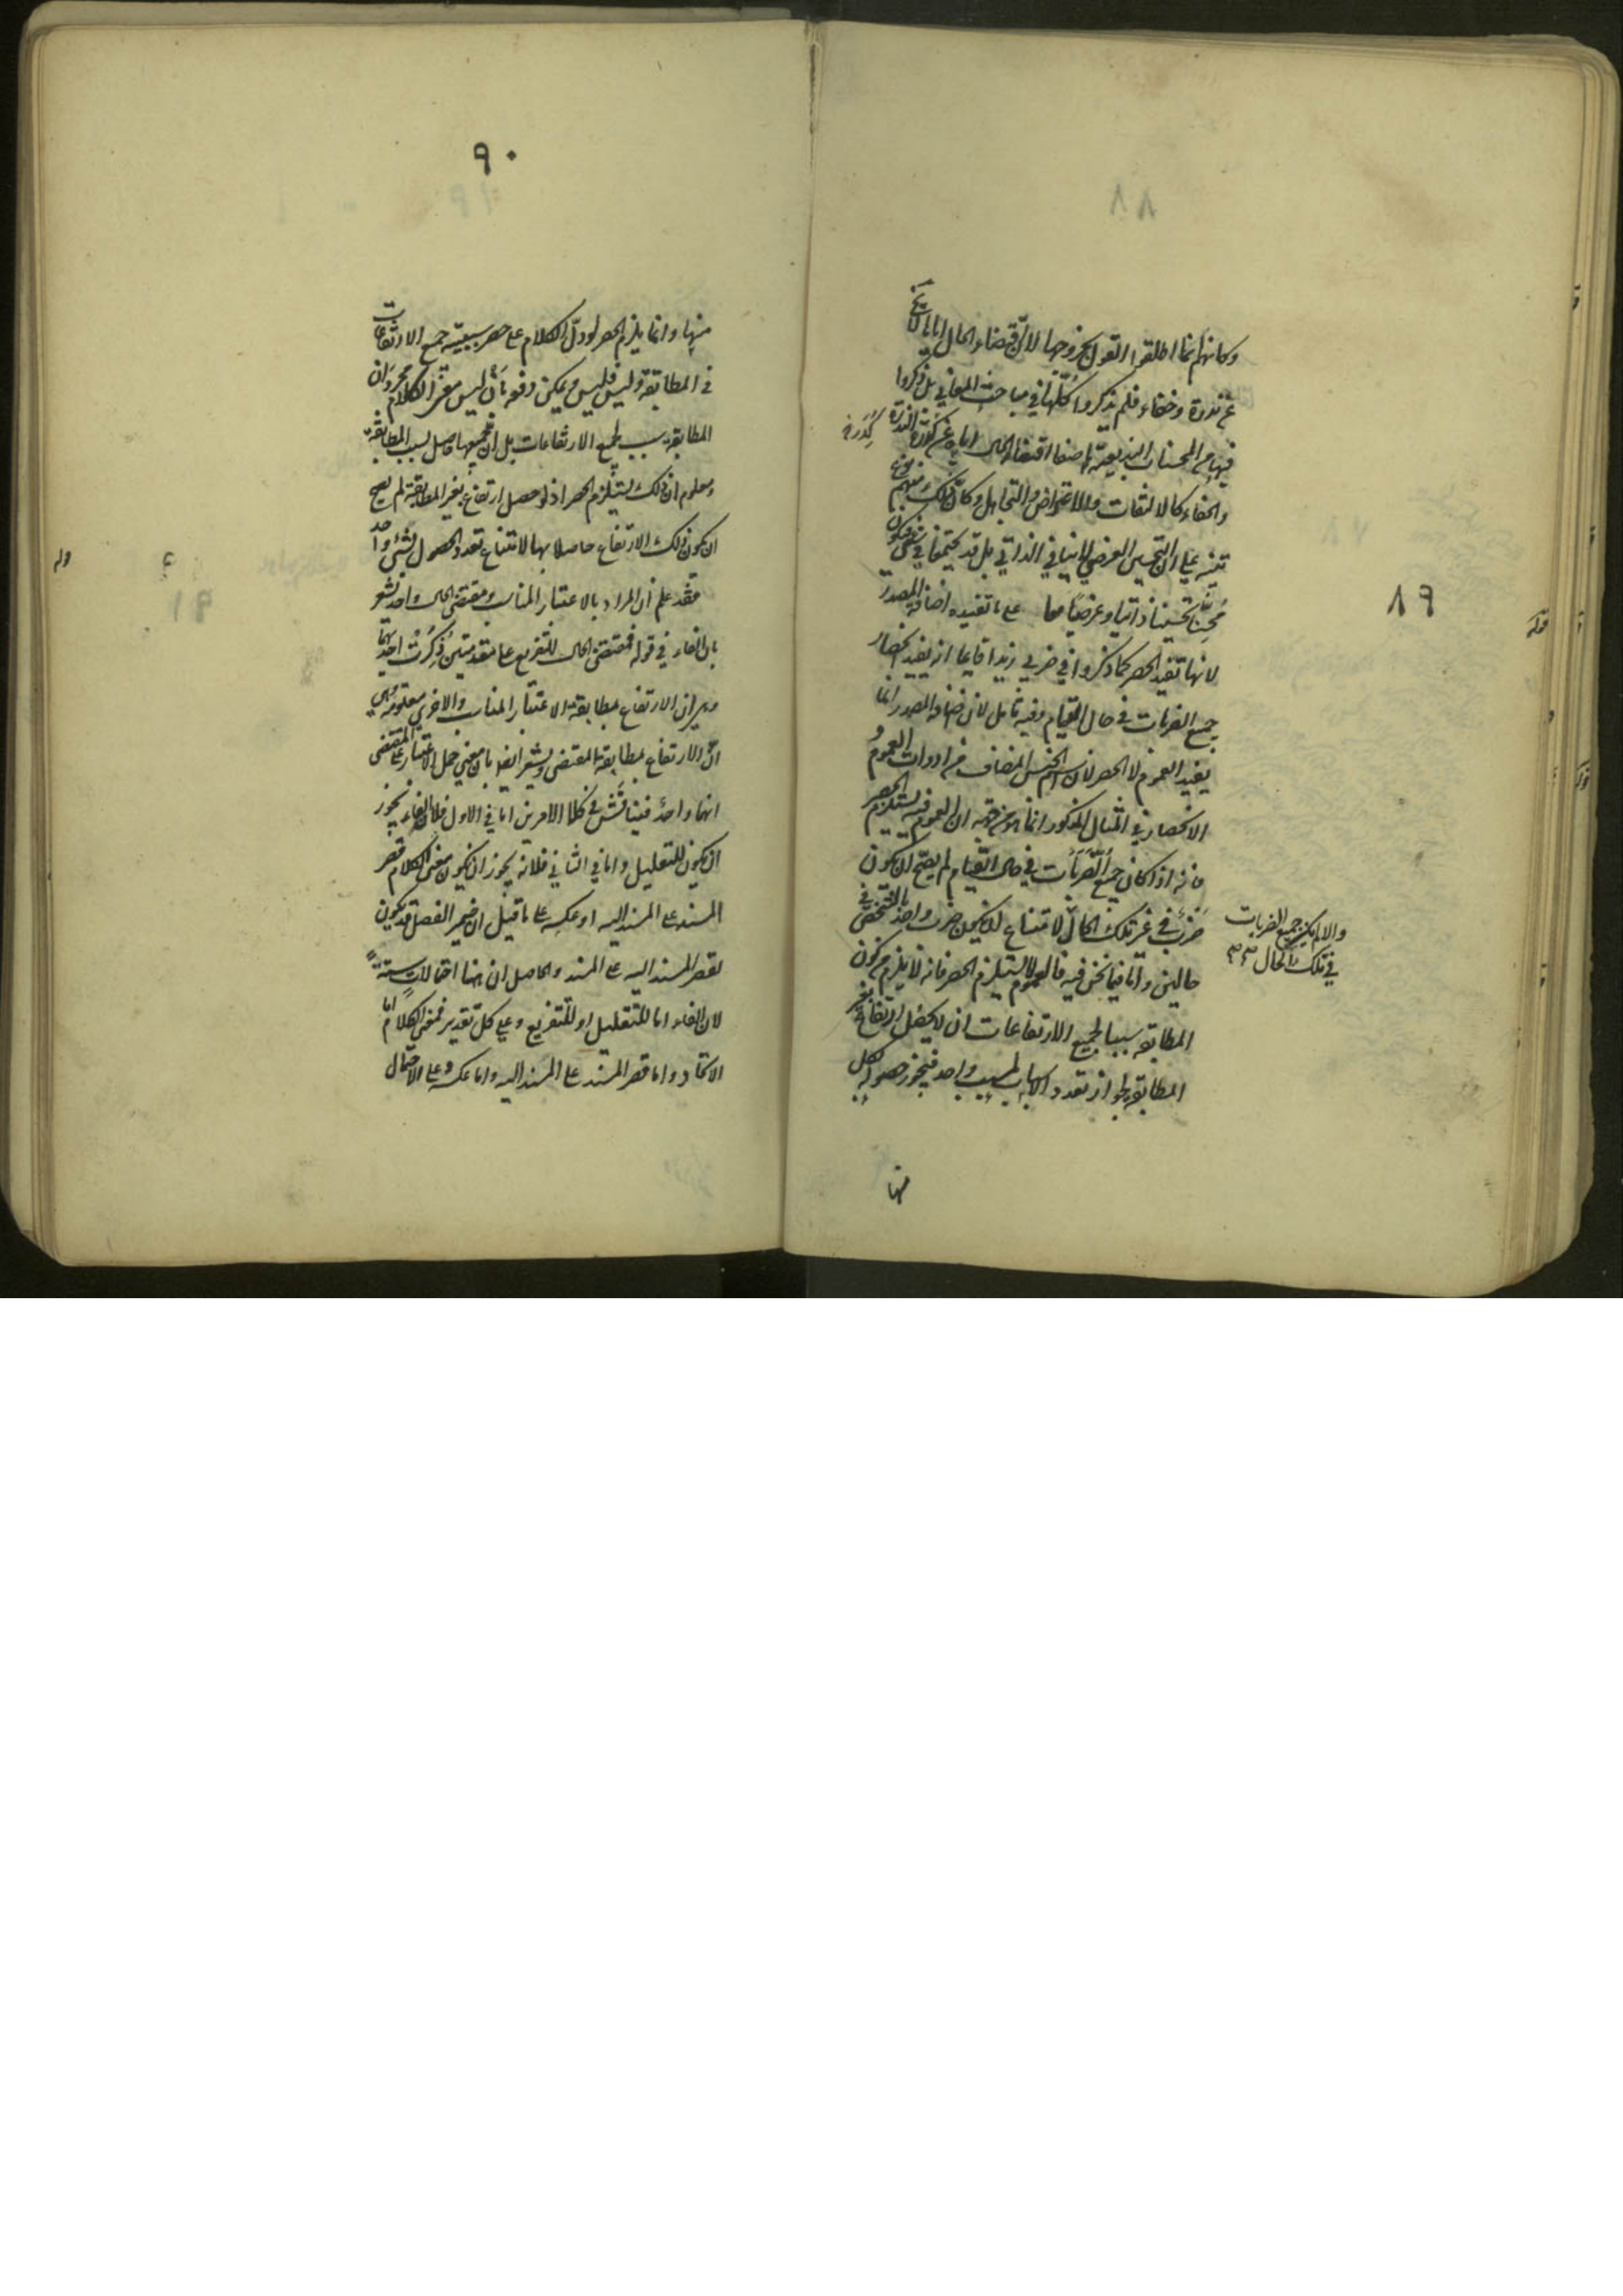 ٨٩
وكانهم انما اطلقوا القول بخروجها لان اقتضاء الحال اياها لا يخ
عن ندرة وخفاء فلم يذكروا كلها في مباحث المعاني بل ذكروا
فيها من المحسنات البديعية ما صفا اقتضاء الحال اياه عن كدرة الندرة
والخفاء كالالتفات والاعتراض والتجاهل وكان ذلك منهم
تنبيه على ان التحسين العرضي لا ينافي الذاتي بل قد يجتمعا في شيء فيكون
محسنا تحسينا ذاتيا وعرضيا معا على ما تفيده اضافة المصدر
لانها تفيد الحصر كما ذكروا في ضربي زيدا قايما انه يفيد انحصار
جميع الضربات في حال القيام وفيه تامل لان اضافة المصدر انما
يفيد العموم لا الحصر لان اسم الجنس المضاف من ادوات العموم و
الانحصار في المثال المذكور انما هو من جهة ان العموم فيه يستلزم الحصر
فانه اذا كان جميع الضربات في حال القيام لم يصح ان يكون
ضرب في غير تلك الحال لامتناع ان يكون ضرب واحد بالشخص في
حالين واما فيما نحن فيه فالعموم لا يستلزم الحصر فانه لا يلزم من كون
المطابقة سببا لجميع الارتفاعات ان لا يحصل ارتفاع بغير
المطابقة لجواز تعدد الاسباب لمسبب واحد فيجوز حصوله بكل
والا لم يكن جميع الضربات
في تلك الحال
منها
٩٠
منها وانما يلزم الحصر لو دل الكلام على حصر سببية جميع الارتفاعات
في المطابقة وليس فليس ويمكن دفعه بان ليس معنى الكلام مجرد ان
المطابقة سبب لجميع الارتفاعات بل ان جميعها حاصل بسبب المطابقة
ومعلوم ان ذلك يستلزم الحصر اذ لو حصل ارتفاع بغير المطابقة لم يصح
ان يكون ذلك الارتفاع حاصلا بها لامتناع تعدد الحصول لشيء واحد
فقد علم ان المراد بالاعتبار المناسب ومقتضى الحال واحد تشعر
بان الفاء في قوله فمقتضى الحال للتفريع على مقدمتين ذكرت احديهما
وهي ان الارتفاع بمطابقة الاعتبار المناسب والاخرى معلومة وهي
ان الارتفاع بمطابقة المقتضى ويشعر ايضا بان معنى حمل الاعتبار على المقتضى
انهما واحد فيناقش في كلا الامرين اما في الاول فلان الفاء يجوز
ان يكون للتعليل واما في الثاني فلانه يجوز ان يكون معنى الكلام قصر
المسند على المسند اليه او عكسه على ما قيل ان ضمير الفصل قد يكون
لقصر المسند اليه على المسند والحاصل ان هنا احتمالات ستة
لان الفاء اما للتعليل او للتفريع وعلى كل تقدير فمعنى الكلام اما
الاتحاد واما قصر المسند على المسند اليه واما عكسه وعلى الاحتمال